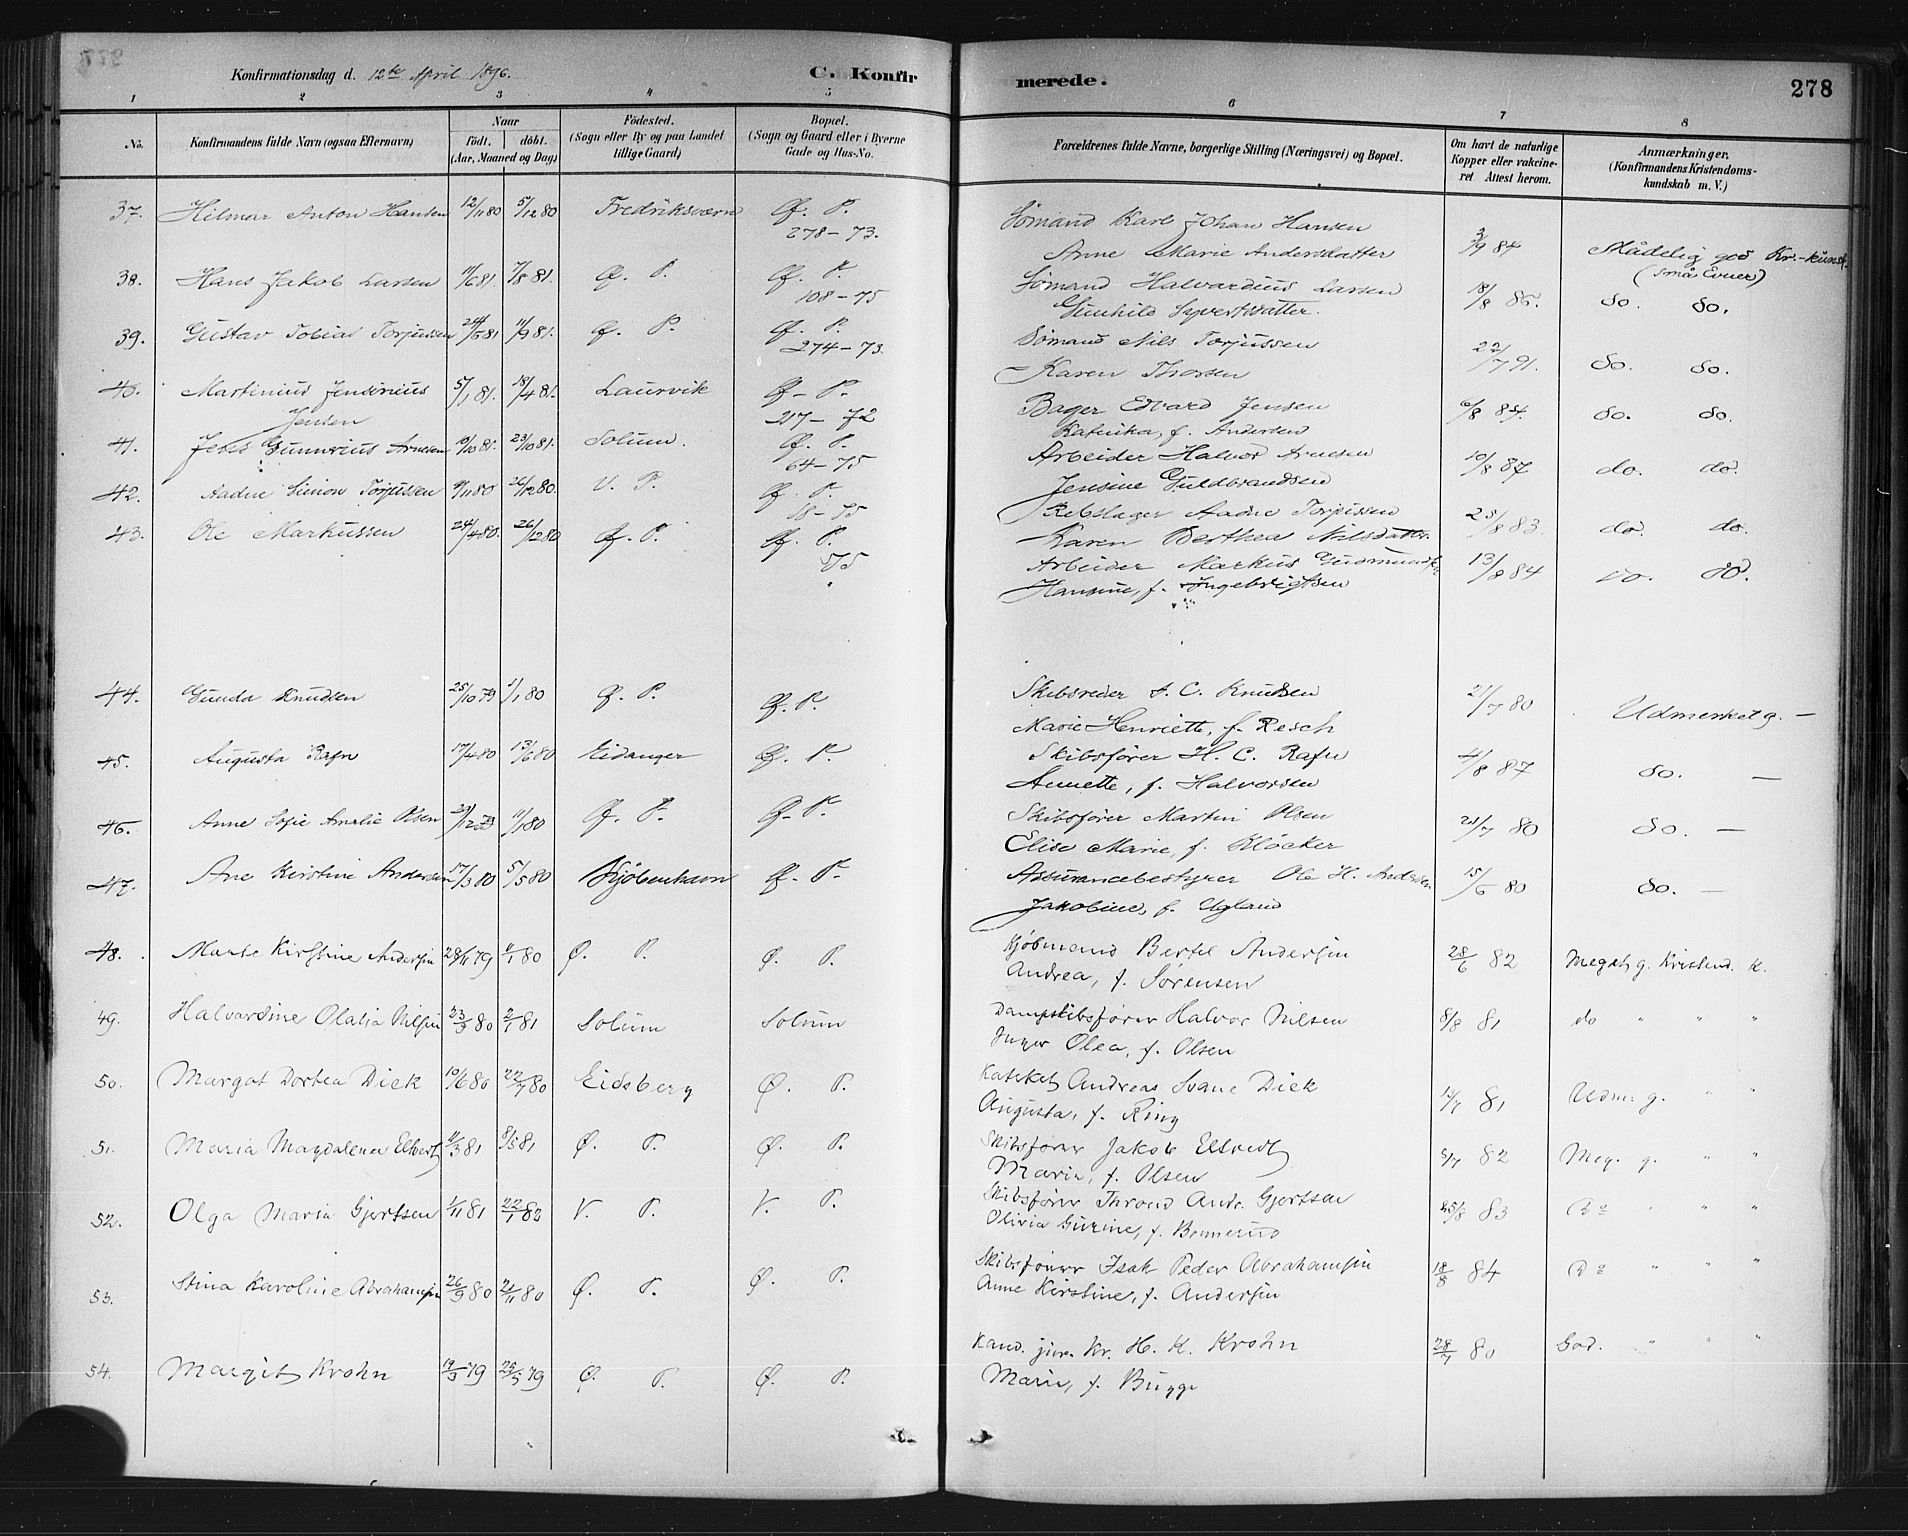 Konfirmationsdag d. 12te April 1896.
C. Konfirmerede.
278
1 2 3 4 5 6 7 8
No.
Konfirmandens fulde Navn (ogsaa Efternavn)
Naar
födt. döbt.
(Aar, Maaned og Dag)
Födested.
(Sogn eller By og paa Landet
tillige Gaard)
Bopæl.
(Sogn og Gaard eller i Byerne
Gade og Hus-No.
Forældrenes fulde Navne, borgerlige Stilling (Næringsvei) og Bopæl.
Om havt de naturlige
Kopper eller vakcine-
ret Attest herom.
Anmærkninger.
(Konfirmandens Kristendoms-
kundskab m. V.)
37. Hilmar Anton Hansen 12/11 80 5/12 80 Fredriksværn Ø. P. 278-73. Sømand Karl Johan Hansen
Anne Marie Andersdatter 3/9 84 Mådelig god Kr.-kundsk.
(små Evner)
38. Hans Jakob Larsen 11/6 81. 7/8 81. Ø. P. Ø. P. 108-75 Sømand Halvardius Larsen
Gunhild Syvertsdatter. 18/8 86. do. do.
39. Gustav Tobias Torjussen 24/5 81 11/9 81. Ø. P. Ø. P. 274-73. Sømand Nils Torjussen
Karen Thorsen 22/7 91. do. do.
40. Martinius Jensinius
Jensen 5/1 81. 18/4 81. Laurvik Ø. P. 217-72 Bager Edvard Jensen
Katinka, f. Andersen 6/8 84. do. do.
41. Jens Gunnerius Arnesen 19/10 81. 23/10 81. Solum. Ø. P. 64-75 Arbeider Halvor Arnesen
Jensine Guldbrandsen 10/8 87 do. do.
42. Aadne Simon Torjussen 9/11 80 26/12 80. V. P. Ø. P. 18-75 Rebslager Aadne Torjussen
Karen Berthea Nilsdatter. 25/8 83. do. do.
43. Ole Markussen 24/4 80. 26/12 80 Ø. P. Ø. P. 75 Arbeider Markus Gudmunds
Hansine, f. Ingebrigtsen 13/8 84 do. do.
44. Gunda Knudsen 25/10 79 1/1 80 Ø. P. Ø. P. Skibsreder J. C. Knudsen
Marie Henriette, f. Resch 21/7 80 Udmerket g. —
45. Augusta Rafn 17/4 80 13/6 80 Eidanger Ø. P. Skibsfører H. C. Rafn
Annette, f. Halvorsen 4/8 87 do. —
46. Anne Sofie Amalie Olsen 29/12 79 11/1 80 Ø. P. Ø. P. Skibsfører Martin Olsen
Elise Marie, f. Kløcker 21/7 80 do. —
47. Ane Kirstine Andersen 17/3 80 5/5 80 Kjøbenhavn Ø. P. Assurancebestyrer Ole H. Andersen
Jakobine, f. Ugland 15/6 80 do. —
48. Marte Kirstine Andersen 28/11 79 4/1 80 Ø. P. Ø. P. Kjøbmand Bertel Andersen
Andrea, f. Sørensen 28/6 82 Meget g. Kristend. K.
49. Halvardine Olalia Nilsen 23/9 80 2/1 81 Solum Solum Dampskibsfører Halvor Nilsen
Inger Olea, f. Olsen 8/8 81 do " " "
50. Margat Dortea Dick 10/6 80 22/7 80 Eidsberg Ø. P. Kateket Andreas Svane Dick
Augusta, f. Ring 13/7 81 Udm. g. " "
51. Maria Magdalena Elstvedt 11/3 81 8/5 81 Ø. P. Ø. P. Skibsfører Jakob Ellvedt
Maria, f. Olsen 5/7 82 Meg. g. " "
52. Olga Maria Gjertsen 1/11 81 22/1 82 V. P. V. P. Skibsfører Thrond Andr. Gjertsen
Olivia Gurine, f. Bommerud 25/8 83 Do " " "
53. Stina Karoline Abrahamsen 26/9 80 21/11 80 Ø. P. Ø. P. Skibsfører Isak Peder Abrahamsen
Anne Kirstine, f. Andersen 18/8 84 Do " " "
54. Margit Krohn 19/3 79 25/5 79 Ø. P. Ø. P. Kand. jur. Kr. H. K. Krohn
Marie, f. Bugge 28/7 80 God. " " "